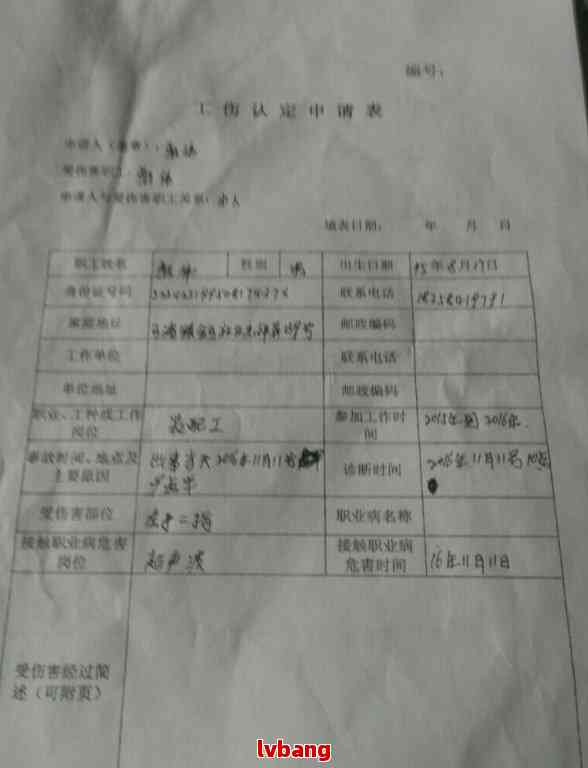 编号：
工伤认定申请表
申请人（盖章）：
受伤害职工：
申请人与受伤害职工关系：本人
填表日期： 年 月 日
职工姓名 性别 男 出生日期 95年8月17日
身份证号码 联系电话
家庭地址 邮政编码
工作单位 联系电话
单位地址 邮政编码
职业、工种或工作
岗位
装配工
参加工作时
间
2015年到2016年.
事故时间、地点及
主要原因
出事当天2016年11月11号
诊断时间
2016年11月11号
受伤害部位 左手二指 职业病名称
接触职业病危害
岗位
超声波
接触职业病
危害时间
16年11月11日
受伤害经过简
述（可附页）
lvbang